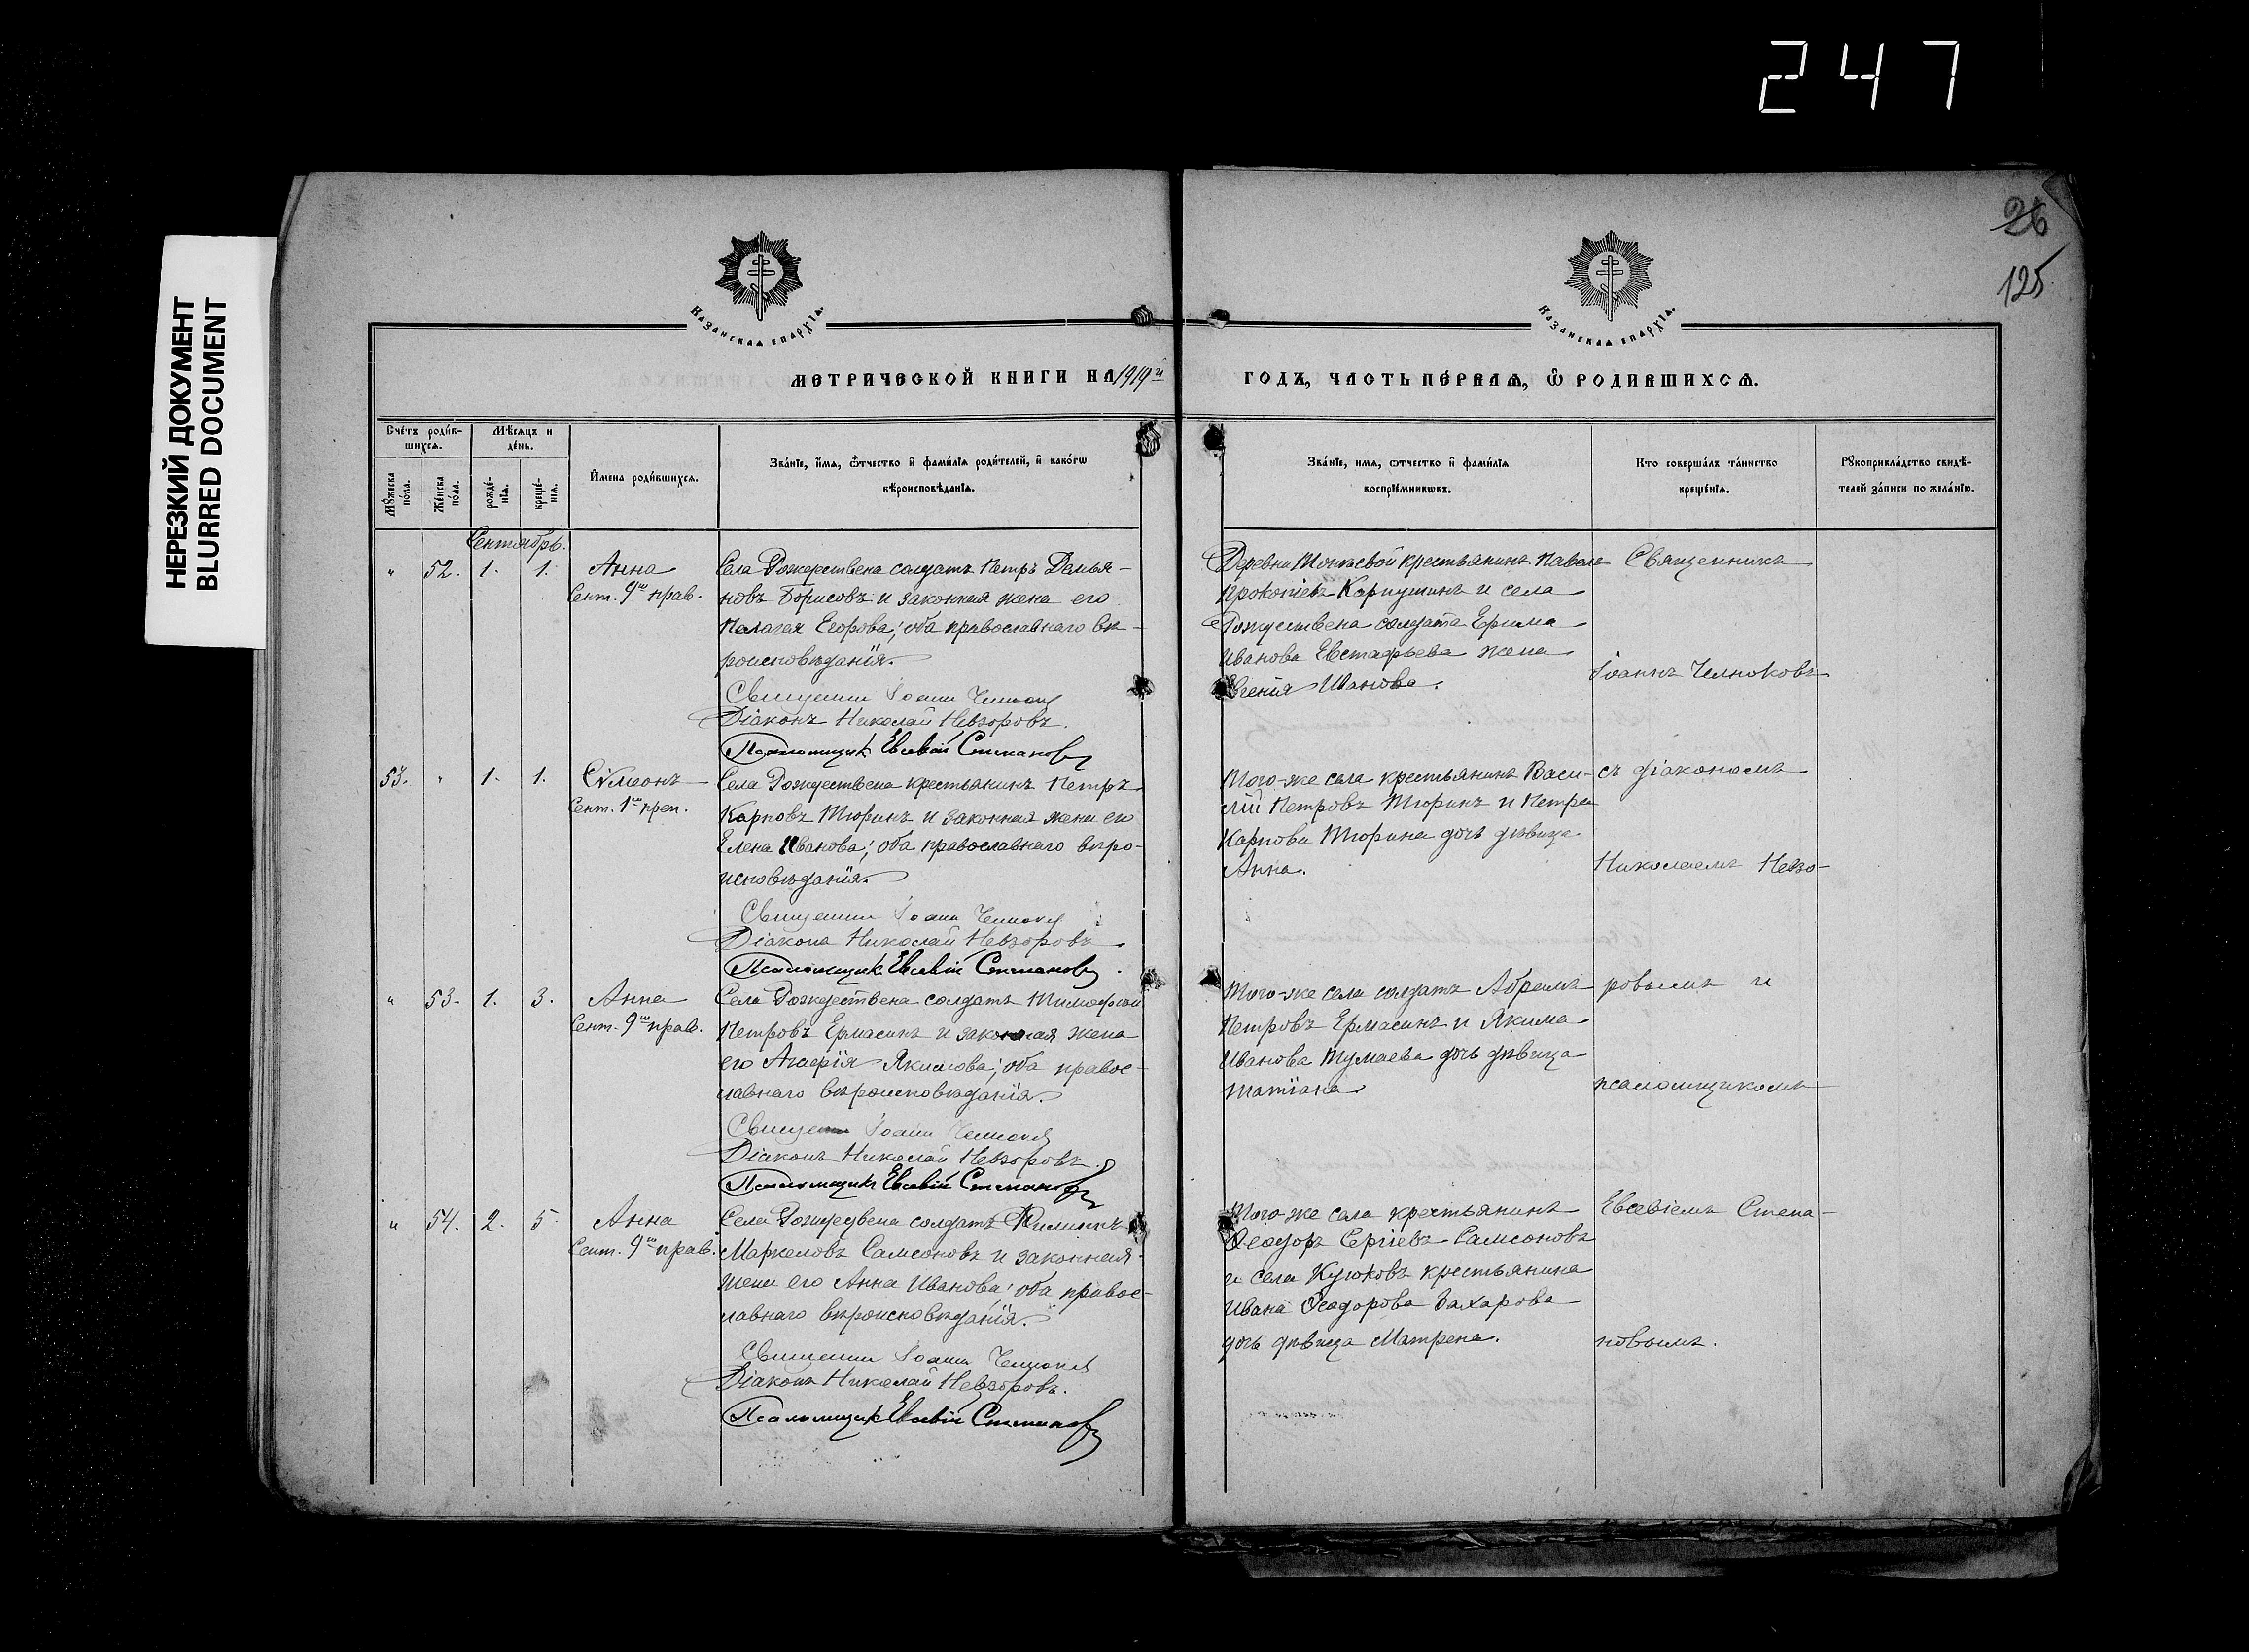 247
НЕРЕЗКИЙ ДОКУМЕНТ
BLURRED DOCUMENT
26
125
Казанская епархїѧ.
Казанская епархїѧ.
МЕТРИЧЕСКОЙ КНИГИ НА 1919й
ГОДЪ, ЧАСТЬ ПЕ́РВАЯ, Ѡ РОДИВШИХСЯ.
Счéтъ роди́в-
шихсѧ.
Мѣ́сѧцъ и
де́нь.
Мꙋ́жеска
по́ла.
Же́нска
по́ла.
рожде́-
нїѧ.
креще́-
нїѧ.
И҆мена роди́вшихсѧ.
Зва́нїе, и҆́мѧ, ѻ҆́тчество и҆ фами́лїѧ роди́телей, и҆ како́гѡ
вѣроисповѣ́данїѧ.
Зва́нїе, имѧ, ѻтчество и҆ фами́лїѧ
воспрїе́мникѡвъ.
Кто соверша́лъ та́инство
креще́нїѧ.
Рꙋкоприкла́дство свидѣ́-
телей за́писи по жела́нїю.
Сентябрь.
" 52. 1. 1. Анна
Сент. 9го прав.
Села Рождествена солдатъ Петръ Демья-
новъ Борисовъ и законная жена его
Пелагея Егорова; оба православнаго вѣ-
роисповѣданія.
Священник Іоанн Челноков
Діаконъ Николай Невзоровъ.
Псаломщик Евсевій Степановъ
Деревни крестьянинъ Павелъ
Прокопіевъ Карпушинъ и села
Рождествена солдата Ефима
Иванова Евстафьева жена
Евгенія Иванова.
Священникъ
Іоаннъ Челноковъ
53. " 1. 1. Сѵмеонъ
Сент. 1го преп.
Села Рождествена крестьянинъ Петръ
Карповъ Тюринъ и законная жена его
Елена Иванова; оба православнаго вѣро-
исповѣданія.
Священник Іоанн Челноков
Діаконъ Николай Невзоровъ
Псаломщик Евсевій Степановъ.
Того-же села крестьянинъ Васи-
лій Петровъ Тюринъ и Петра
Карпова Тюрина дочь дѣвица
Анна.
съ діакономъ
Николаемъ Невзо-
" 53. 1. 3. Анна
Сент. 9го прав.
Села Рождествена солдатъ Тимофей
Петровъ Ермасинъ и законная жена
его Агафія Якимова; оба правос-
лавнаго вѣроисповѣданія.
Священ Іоанн Челноков
Діаконъ Николай Невзоровъ.
Псаломщикъ Евсевій Степановъ
Того-же села солдатъ Абрамъ
Петровъ Ермасинъ и Якима
Иванова Тумаева дочь дѣвица
Татіана
ровымъ и
псаломщикомъ
" 54. 2. 5. Анна
Сент. 9го прав.
Села Рождествена солдатъ Филиппъ
Маркеловъ Самсоновъ и законная
жена его Анна Иванова; оба правос-
лавнаго вѣроисповѣданія.
Священник Іоанн Челноков
Діаконъ Николай Невзоровъ.
Псаломщик Евсевій Степановъ
Того-же села крестьянинъ
Ѳеодоръ Сергіевъ Самсоновъ
и села Куюковъ крестьянина
Ивана Ѳеодорова Захарова
дочь дѣвица Матрена.
Евсевіемъ Степа-
новымъ.